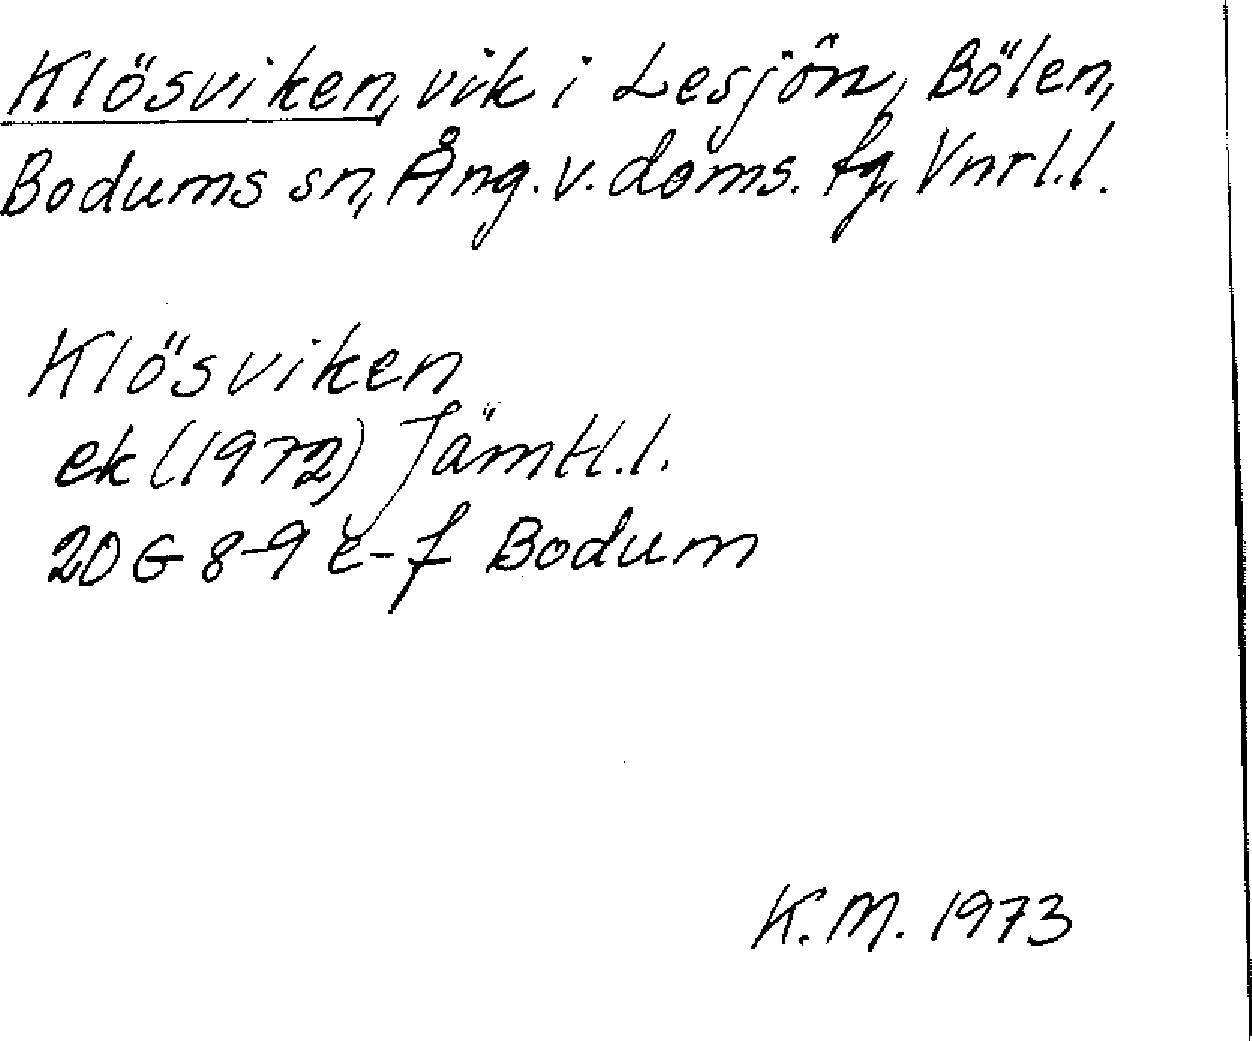 Klösviken, vik i Lesjön, Bölen,
Bodums sn, Ång. v. doms. fg., Vnrl.l.
Klösviken
ek (1972) Jämtl.l.
20 G 8-9 e-f Bodum
K.M. 1973